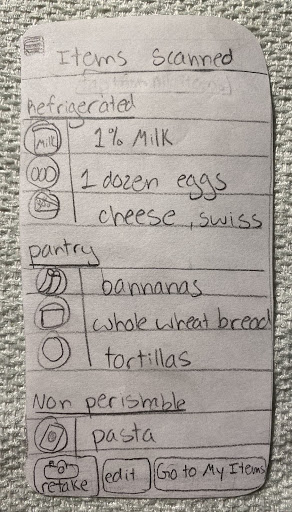 Items Scanned
Refrigerated
Milk
1% Milk
1 dozen eggs
cheese, swiss
pantry
bannanas
whole wheat bread
tortillas
Non perismble
pasta
retake
edit
Go to My Items